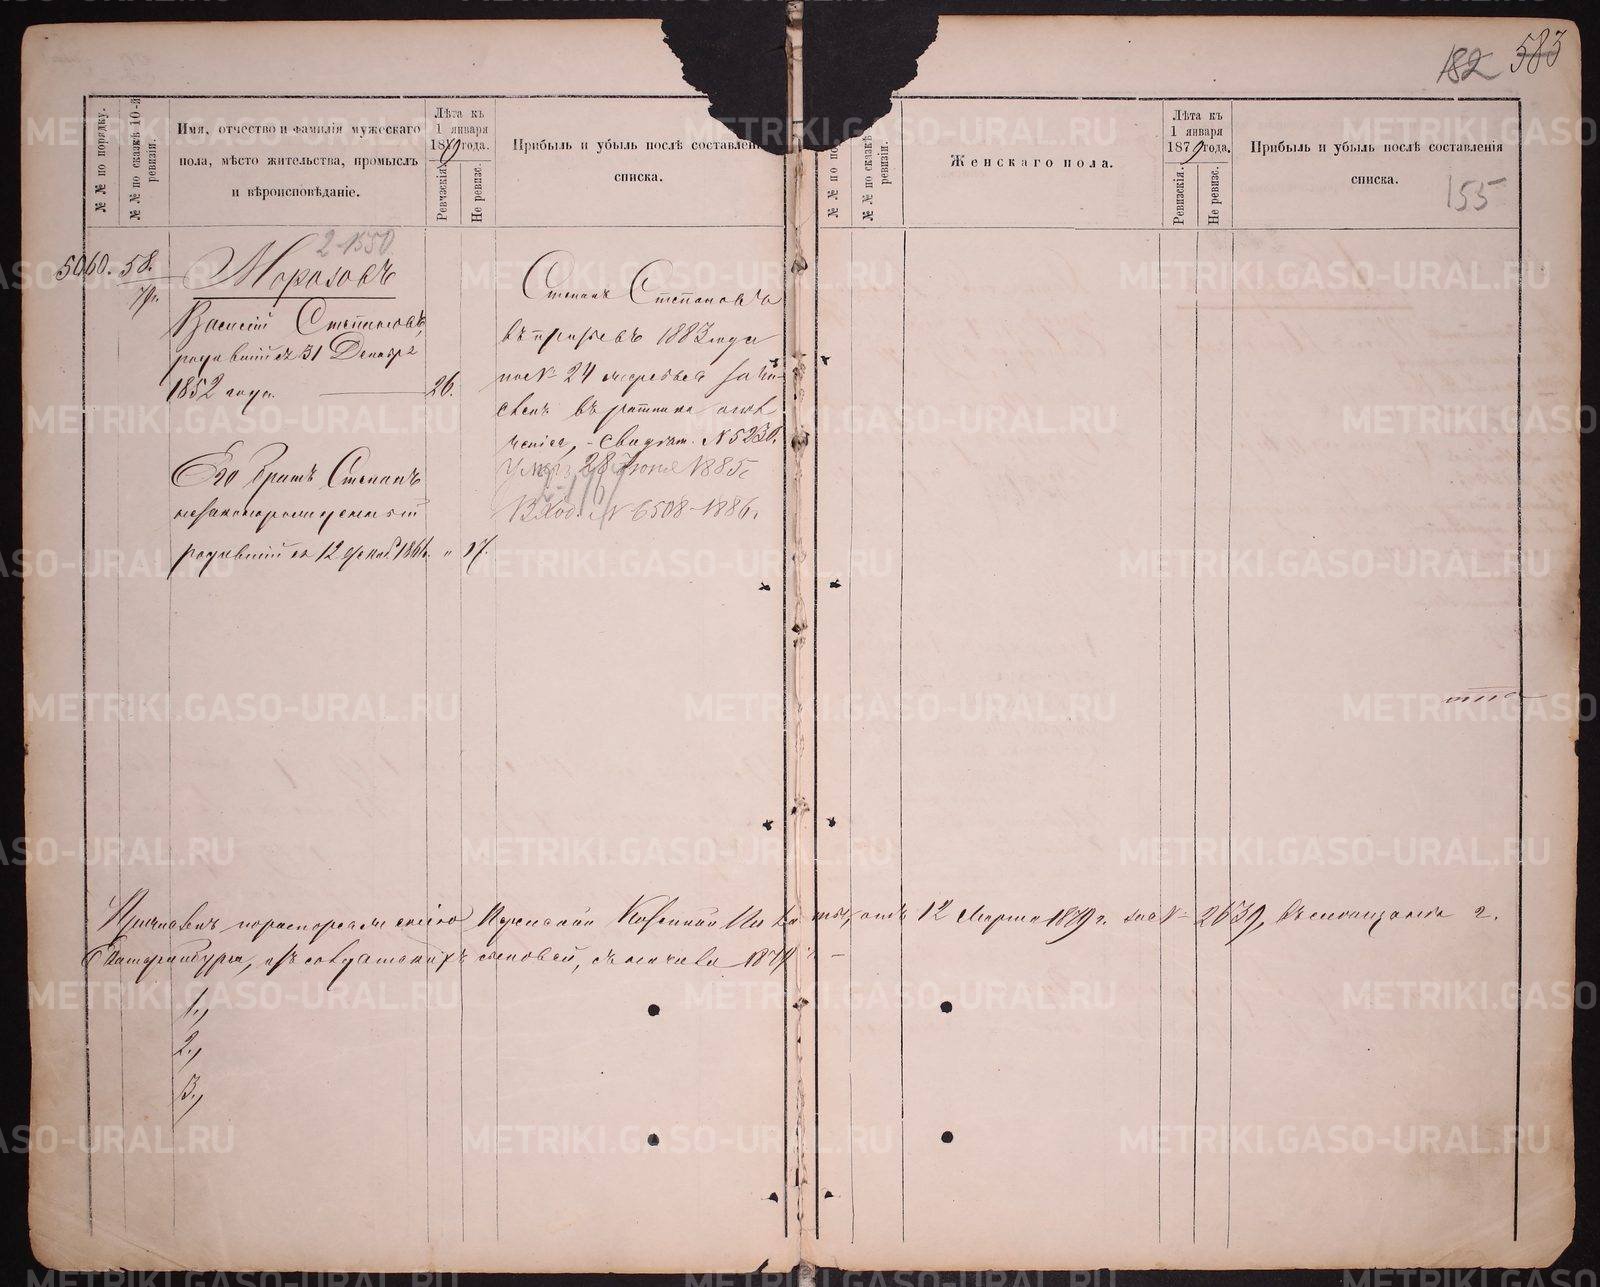 182 583
№ № по порядку.
№ № по сказкѣ 10-й ревизіи.
Имя, отчество и фамилія мужескаго
пола, мѣсто жительства, промыслъ
и вѣроисповѣданіе.
Лѣта къ
1 января
1879 года.
Ревизскія.
Не ревизс.
Прибыль и убыль послѣ составлен
списка.
№ № по сказкѣ
ревизіи.
Женскаго пола.
Лѣта къ
1 января
1879 года.
Ревизскія.
Не ревизс.
Прибыль и убыль послѣ составленія
списка.
155
2-1550
5060. 58.
Морозовъ
Василій Степановъ,
родившійся 31 Декабр
1852 года. 26.
Его братъ Степанъ
незаконнорожденный
родившійся 12 1861. " 17.
Степанъ Степановъ
въ призывъ 1883 года
по № 24 жребья зачи-
сленъ въ ратники опол
ченія, - свидѣт. № 5230.
Умеръ 28 Іюня 1885
Вход. № 6508-1886.
Причисленъ по распоряженію Пермской Казенной Палаты, отъ 12 Марта 1879 г. за № 2639, въ мещане г.
Екатеринбурга, изъ солдатскихъ сыновей, съ начала 1879 г.
1.,
2.,
3.,
METRIKI.GASO-URAL.RU